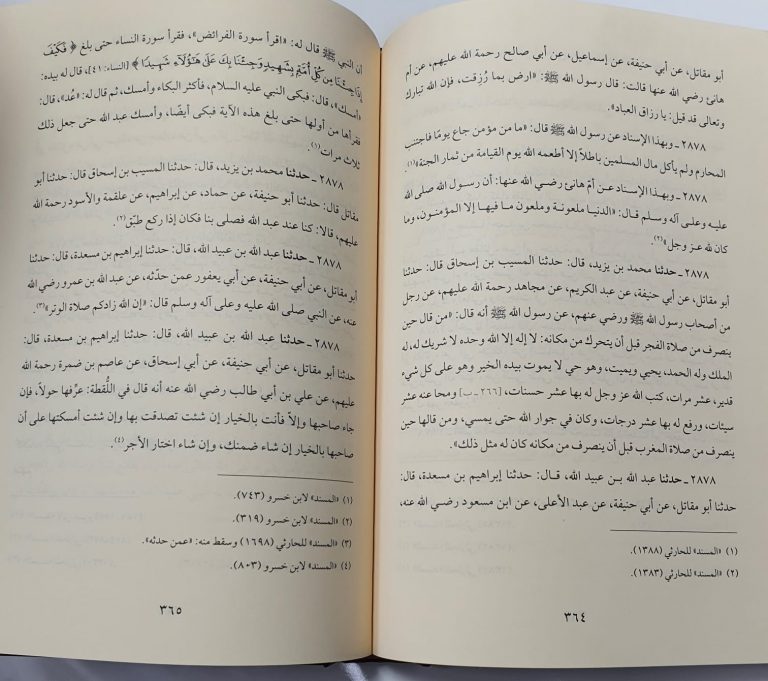 أبو مقاتل، عن أبي حنيفة، عن إسماعيل، عن أبي صالح رحمة الله عليهم، عن أم
هانئ رضي الله عنها قالت: قال رسول الله ﷺ: «ارض بما رُزِقت، فإن الله تبارك
وتعالى قد قيل: يا رزاق العباد».
٢٨٧٨ ـ وبهذا الإسناد عن رسول الله ﷺ قال: «ما من مؤمن جاع يومًا فاجتنب
المحارم ولم يأكل مال المسلمين باطلًا إلا أطعمه الله يوم القيامة من ثمار الجنة»(١).
٢٨٧٨ ـ وبهذا الإسناد عن أمّ هانئ رضي الله عنها: أن رسول الله صلى الله
عليه وعلى آله وسلم قال: «الدنيا ملعونة وملعون ما فيها إلا المؤمنون، وما
كان لله عز وجل»(٢).
٢٨٧٨ ـ حدثنا محمد بن يزيد، قال: حدثنا المسيب بن إسحاق قال: حدثنا
أبو مقاتل، عن أبي حنيفة، عن عبد الكريم، عن مجاهد رحمة الله عليهم، عن رجل
من أصحاب رسول الله ﷺ ورضي عنهم، عن رسول الله ﷺ أنه قال: «من قال حين
ينصرف من صلاة الفجر قبل أن يتحرك من مكانه: لا إله إلا الله وحده لا شريك له، له
الملك وله الحمد، يحيي ويميت، وهو حي لا يموت بيده الخير وهو على كل شيء
قدير، عشر مرات، كتب الله عز وجل له بها عشر حسنات، [٢٦٦ ـ ب] ومحا عنه عشر
سيئات، ورفع له بها عشر درجات، وكان في جوار الله حتى يمسي، ومن قالها حين
ينصرف من صلاة المغرب قبل أن ينصرف من مكانه كان له مثل ذلك».
٢٨٧٨ ـ حدثنا عبد الله بن عبيد الله، قال: حدثنا إبراهيم بن مسعدة، قال:
حدثنا أبو مقاتل، عن أبي حنيفة، عن عبد الأعلى، عن ابن مسعود رضي الله عنه،
(١) «المسند» للحارثي (١٣٨٨).
(٢) «المسند» للحارثي (١٣٨٣).
٣٦٤
أن النبي ﷺ قال له: «اقرأ سورة الفرائض»، فقرأ سورة النساء حتى بلغ ﴿فَكَيْفَ
إِذَا جِئْنَا مِن كُلِّ أُمَّةٍ بِشَهِيدٍ وَجِئْنَا بِكَ عَلَىٰ هَٰؤُلَاءِ شَهِيدًا﴾ [النساء: ٤١]، قال له بيده:
«أمسك»، قال: فبكى النبي عليه السلام، فأكثر البكاء وأمسك، ثم قال له: «عُد»، قال:
فقرأها من أولها حتى بلغ هذه الآية فبكى أيضًا، وأمسك عبد الله حتى جعل ذلك
ثلاث مرات(١).
٢٨٧٨ ـ حدثنا محمد بن يزيد، قال: حدثنا المسيب بن إسحاق قال: حدثنا أبو
مقاتل قال: حدثنا أبو حنيفة، عن حماد، عن إبراهيم، عن علقمة والأسود رحمة الله
عليهم، قالا: كنا عند عبد الله فصلى بنا فكان إذا ركع طبّق(٢).
٢٨٧٨ ـ حدثنا عبد الله بن عبيد الله، قال: حدثنا إبراهيم بن مسعدة، قال: حدثنا
أبو مقاتل، عن أبي حنيفة، عن أبي يعفور عمن حدّثه، عن عبد الله بن عمرو رضي الله
عنه، عن النبي صلى الله عليه وعلى آله وسلم قال: «إن الله زادكم صلاة الوتر»(٣).
٢٨٧٨ ـ حدثنا عبد الله بن عبيد الله، قال: حدثنا إبراهيم بن مسعدة، قال:
حدثنا أبو مقاتل، عن أبي حنيفة، عن أبي إسحاق، عن عاصم بن ضمرة رحمة الله
عليهم، عن علي بن أبي طالب رضي الله عنه أنه قال في اللُّقطة: عرِّفها حولًا، فإن
جاء صاحبها وإلّا فأنت بالخيار إن شئت تصدقت بها وإن شئت أمسكتها على أن
صاحبها بالخيار إن شاء ضمنك، وإن شاء اختار الأجر(٤).
(١) «المسند» لابن خسرو (٧٤٣).
(٢) «المسند» لابن خسرو (٣١٩).
(٣) «المسند» للحارثي (١٦٩٨) وسقط منه: «عمن حدثه».
(٤) «المسند» لابن خسرو (٨٠٣).
٣٦٥